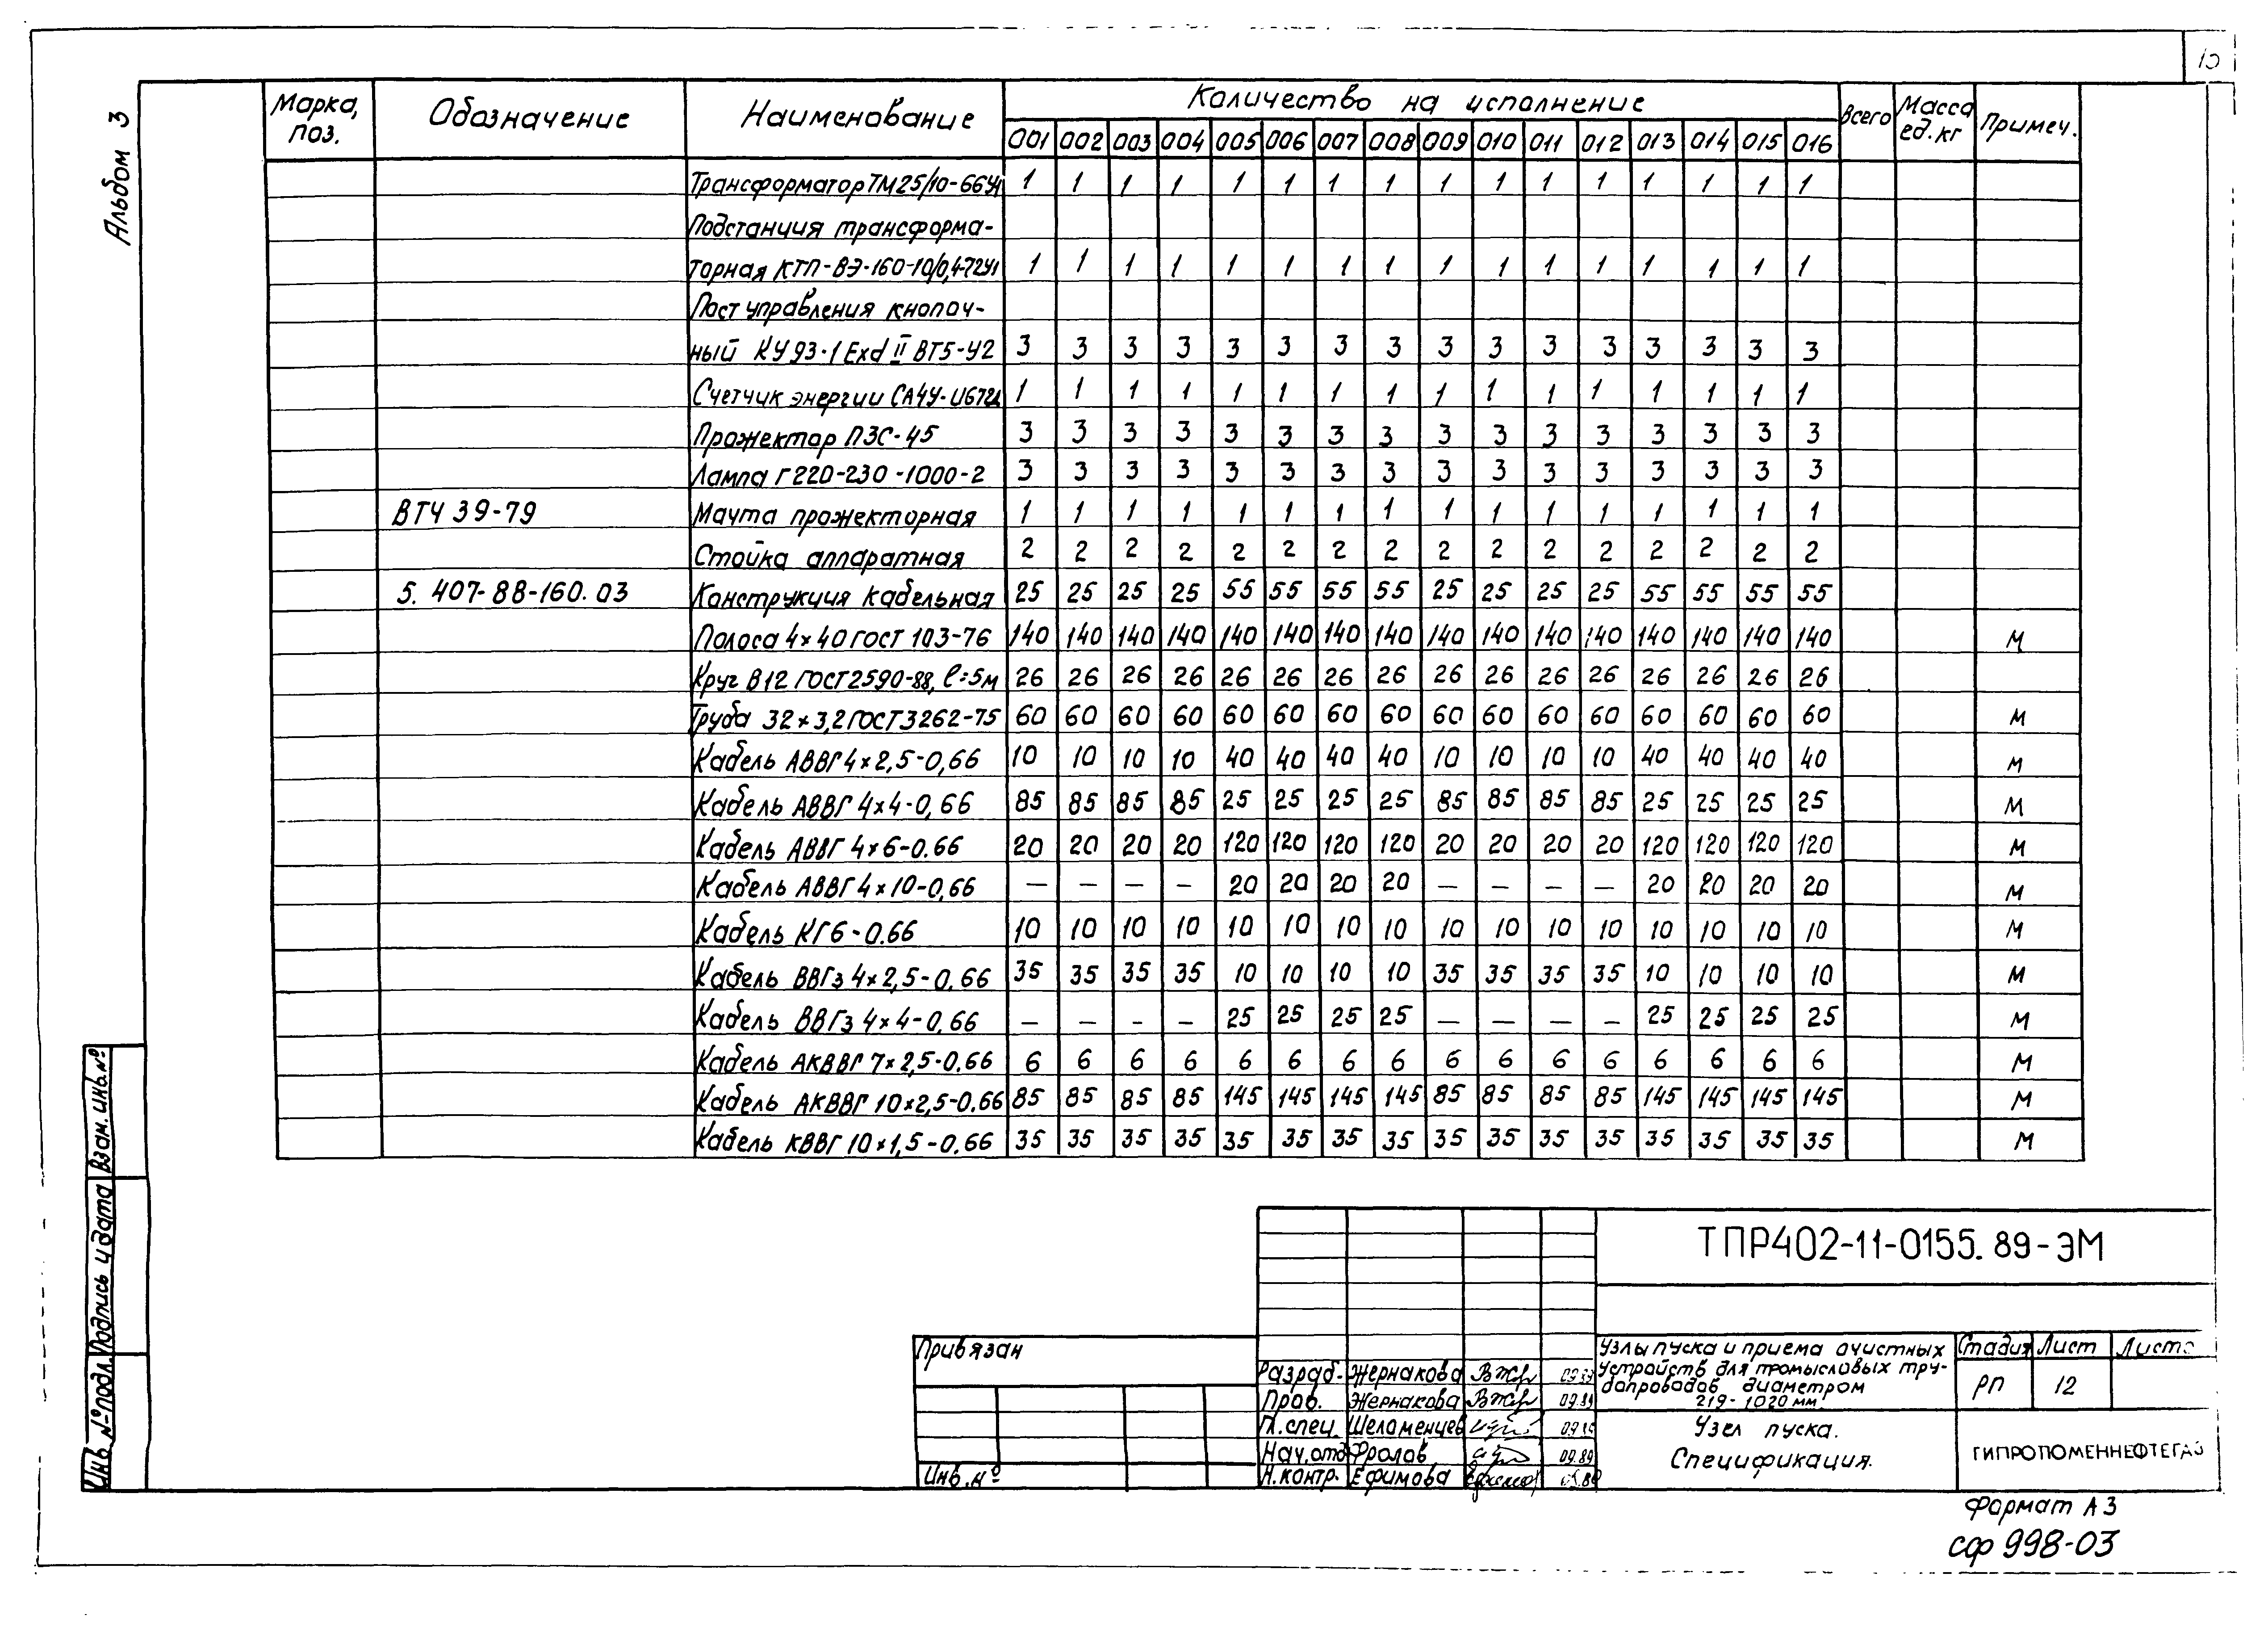 Альбом 3
Марка, поз. Обозначение Наименование Количество на исполнение Всего Масса ед. кг Примеч.
001 002 003 004 005 006 007 008 009 010 011 012 013 014 015 016
Трансформатор ТМ25/10-66У1 1 1 1 1 1 1 1 1 1 1 1 1 1 1 1 1
Подстанция трансформа-
торная КТП-ВЭ-160-10/0,4-72У1 1 1 1 1 1 1 1 1 1 1 1 1 1 1 1 1
Пост управления кнопоч-
ный КУ93-1 Exd II ВТ5-У2 3 3 3 3 3 3 3 3 3 3 3 3 3 3 3 3
Счетчик энергии СА4У-И672Д 1 1 1 1 1 1 1 1 1 1 1 1 1 1 1 1
Прожектор ПЗС-45 3 3 3 3 3 3 3 3 3 3 3 3 3 3 3 3
Лампа Г220-230-1000-2 3 3 3 3 3 3 3 3 3 3 3 3 3 3 3 3
ВТЧ 39-79 Мачта прожекторная 1 1 1 1 1 1 1 1 1 1 1 1 1 1 1 1
Стойка аппаратная 2 2 2 2 2 2 2 2 2 2 2 2 2 2 2 2
5.407-88-160.03 Конструкция кабельная 25 25 25 25 55 55 55 55 25 25 25 25 55 55 55 55
Полоса 4×40 ГОСТ 103-76 140 140 140 140 140 140 140 140 140 140 140 140 140 140 140 140 м
Круг В12 ГОСТ2590-88, l=5м 26 26 26 26 26 26 26 26 26 26 26 26 26 26 26 26
Труба 32×3,2 ГОСТ3262-75 60 60 60 60 60 60 60 60 60 60 60 60 60 60 60 60 м
Кабель АВВГ 4×2,5-0,66 10 10 10 10 40 40 40 40 10 10 10 10 40 40 40 40 м
Кабель АВВГ 4×4-0,66 85 85 85 85 25 25 25 25 85 85 85 85 25 25 25 25 м
Кабель АВВГ 4×6-0.66 20 20 20 20 120 120 120 120 20 20 20 20 120 120 120 120 м
Кабель АВВГ 4×10-0,66 — — — — 20 20 20 20 — — — — 20 20 20 20 м
Кабель КГ6-0.66 10 10 10 10 10 10 10 10 10 10 10 10 10 10 10 10 м
Кабель ВВГз 4×2,5-0.66 35 35 35 35 10 10 10 10 35 35 35 35 10 10 10 10 м
Кабель ВВГз 4×4-0,66 — — — — 25 25 25 25 — — — — 25 25 25 25 м
Кабель АКВВГ 7×2,5-0.66 6 6 6 6 6 6 6 6 6 6 6 6 6 6 6 6 м
Кабель АКВВГ 10×2,5-0.66 85 85 85 85 145 145 145 145 85 85 85 85 145 145 145 145 м
Кабель КВВГ 10×1,5-0.66 35 35 35 35 35 35 35 35 35 35 35 35 35 35 35 35 м
Взам. инв.№
Подпись и дата
Инв. №подл.
ТПР402-11-0155.89-ЭМ
Привязан
Инв.№
Разраб. Жернакова
Пров. Жернакова 09.89
Гл.спец. Шеломенцев
Нач.отд Фролов 09.89
Н.контр. Ефимова
Узлы пуска и приема очистных
устройств для промысловых тру-
бопроводов диаметром
219-1020 мм
Стадия Лист Листо
РП 12
Узел пуска.
Спецификация.
ГИПРОТЮМЕННЕФТЕГАЗ
Формат А3
сф 998-03